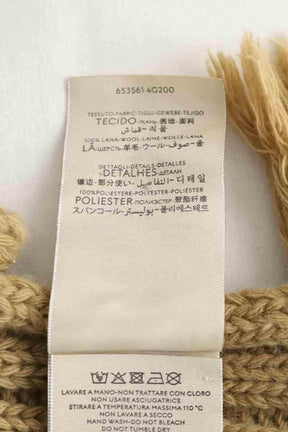 653561 4G200
TESSUTO-FABRIC-TISSU-GEWEBE-TEJIDO
TECIDO-ТКАНЬ-表地-面料
قماش-직물
100% LANA-WOOL-LAINE-WOLLE-LANA
LÃ-ШЕРСТЬ-羊毛-ウール-صوف-울
DETTAGLI-DETAILS-DETALLES
DETALHES-ДЕТАЛИ
镶边-部分使い-التفاصيل-디테일
100%POLIESTERE-POLYESTER-POLYESTER
POLIESTER-ПОЛИЭСТЕР-聚酯纤维
スパンコール-بوليستر-폴리에스테르
LAVARE A MANO-NON TRATTARE CON CLORO
NON USARE ASCIUGATRICE
STIRARE A TEMPERATURA MASSIMA 110 °C
NON LAVARE A SECCO
HAND WASH-DO NOT BLEACH
DO NOT TUMBLE DRY